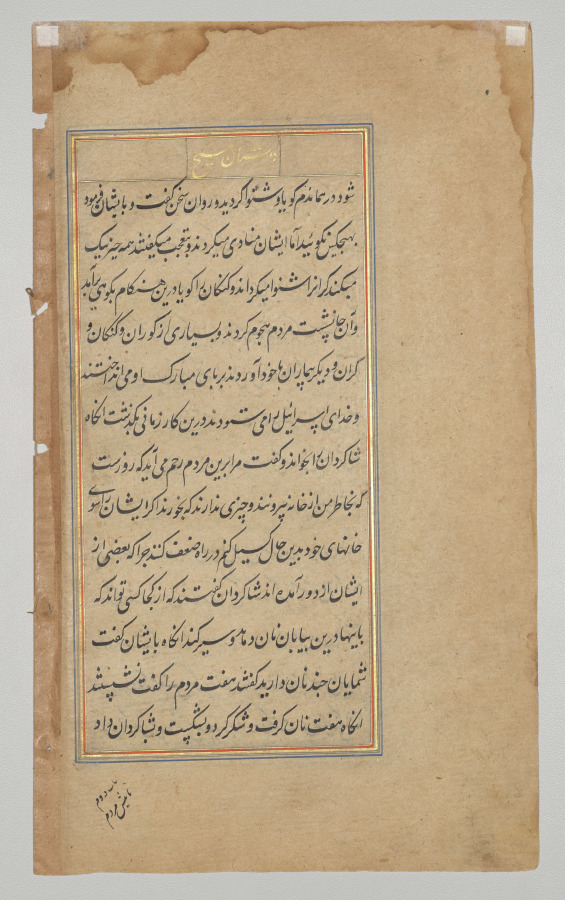 داستان مسیح
شود در سما ندم گویا و شنوا گردید و روان سخن گفت و بایشان فرمود
بهیچکس نگوئید اما ایشان منادی میکردند و تعجب میگفتند همه چیز نیک
میکند کرانرا شنوا میگرداند و گنگان را گویا درین هنگام بکوهی برآمد
و آن جا نشست مردم هجوم کردند و بسیاری از کوران و گنگان و
کران و دیگر بیماران با خود آوردند بر پای مبارک او می انداختند
و خدای اسرائیل را می ستودند درین کار زمانی بگذشت آنگاه
شاگردان را بخواند و گفت مرا برین مردم رحم می آید که روز ست
که بخاطر من از خانه بیرونند و چیزی ندارند که بخورند اگر ایشان را سوی
خانهای خود بدین حال گسیل کنم در راه ضعف کنند چرا که بعضی از
ایشان از دور آمده اند شاگردان گفتند که از کجا کسی تواند که
باینها درین بیابان نان دهد و سیر کند آنگاه بایشان گفت
شمایان چند نان دارید گفتند هفت مردم را گفت نشینند
آنگاه هفت نان گرفت و شکر کرد و بشکست و بشاگردان داد
تا پیش مردم